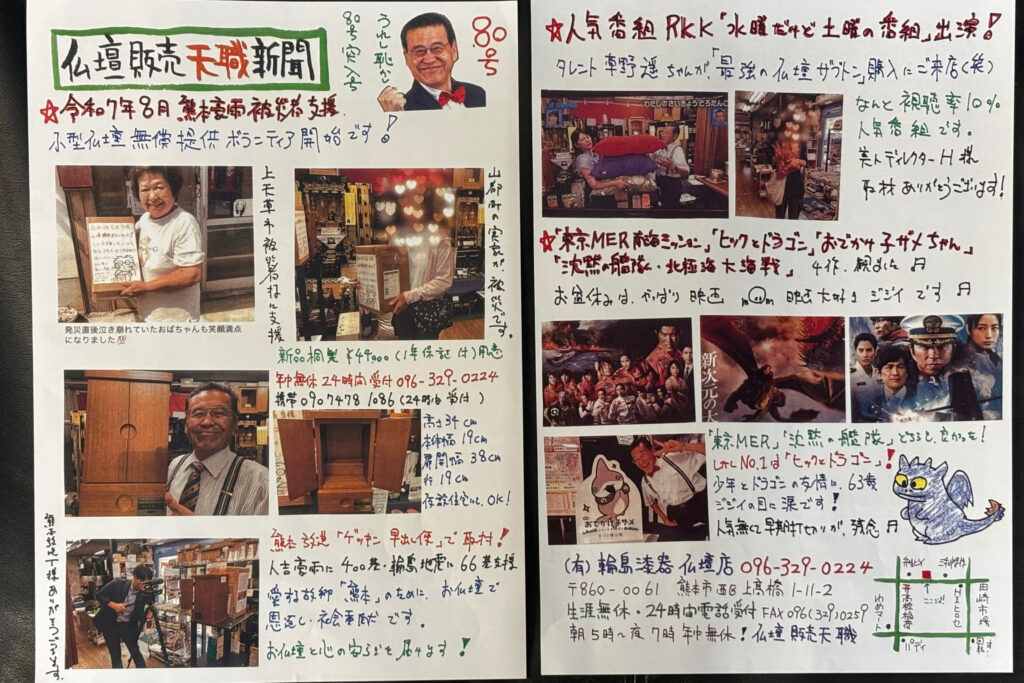 仏壇販売天職新聞
うれし恥かし
80号突入号
80号
☆令和7年8月 熊本豪雨被災者支援
小型仏壇無償提供ボランティア開始です!
上天草市被災者様に支援
山都町の実家が、被災です。
発災直後泣き崩れていたおばちゃんも笑顔満点
になりました
新品桐製 ¥44,000(1年保証付)用意
年中無休24時間受付096-329-0224
携帯09074781086(24時間受付)
高さ34cm
本体幅19cm
扉開幅38cm
奥行19cm
仮設住宅にも、OK!
熊本放送「ゲツキン早出し便」で取材!
人吉豪雨に400基・輪島地震に66基支援
愛する故郷「熊本」のために、お仏壇で
恩返し・社会貢献です。
お仏壇と心の安らぎを届けます!
様ありがとうございます。
☆人気番組RKK「水曜だけど土曜の番組」出演!
タレント草野遥ちゃんが、「最強の仏壇ザブトン」購入にご来店(笑)
わたしのさいきょうどろだんご
なんと視聴率10%
人気番組です。
美人ディレクターH様
取材ありがとうございます!
☆「東京MER南海ミッション」「ヒックとドラゴン」「おでかけ子ザメちゃん」
「沈黙の艦隊・北極海大海戦」4作、観ました♬
お盆休みは、やっぱり映画 映画大好きジジイです♬
新次元の
おでかけ子ザメ
「東京MER」「沈黙の艦隊」どちらも、良かった!
しかしNo.1は「ヒックとドラゴン」!
少年とドラゴンの友情に、63歳
ジジイの目に涙です!
人気無く早期打ち切りが、残念♬
(有)輪島漆器仏壇店 096-329-0224
〒860-0061 熊本市西区上高橋1-11-2
生涯無休・24時間電話受付FAX096(329)0259
朝5時~夜7時年中無休!仏壇販売天職
ここだ!
高橋稲荷
ゆめマート
田崎市場